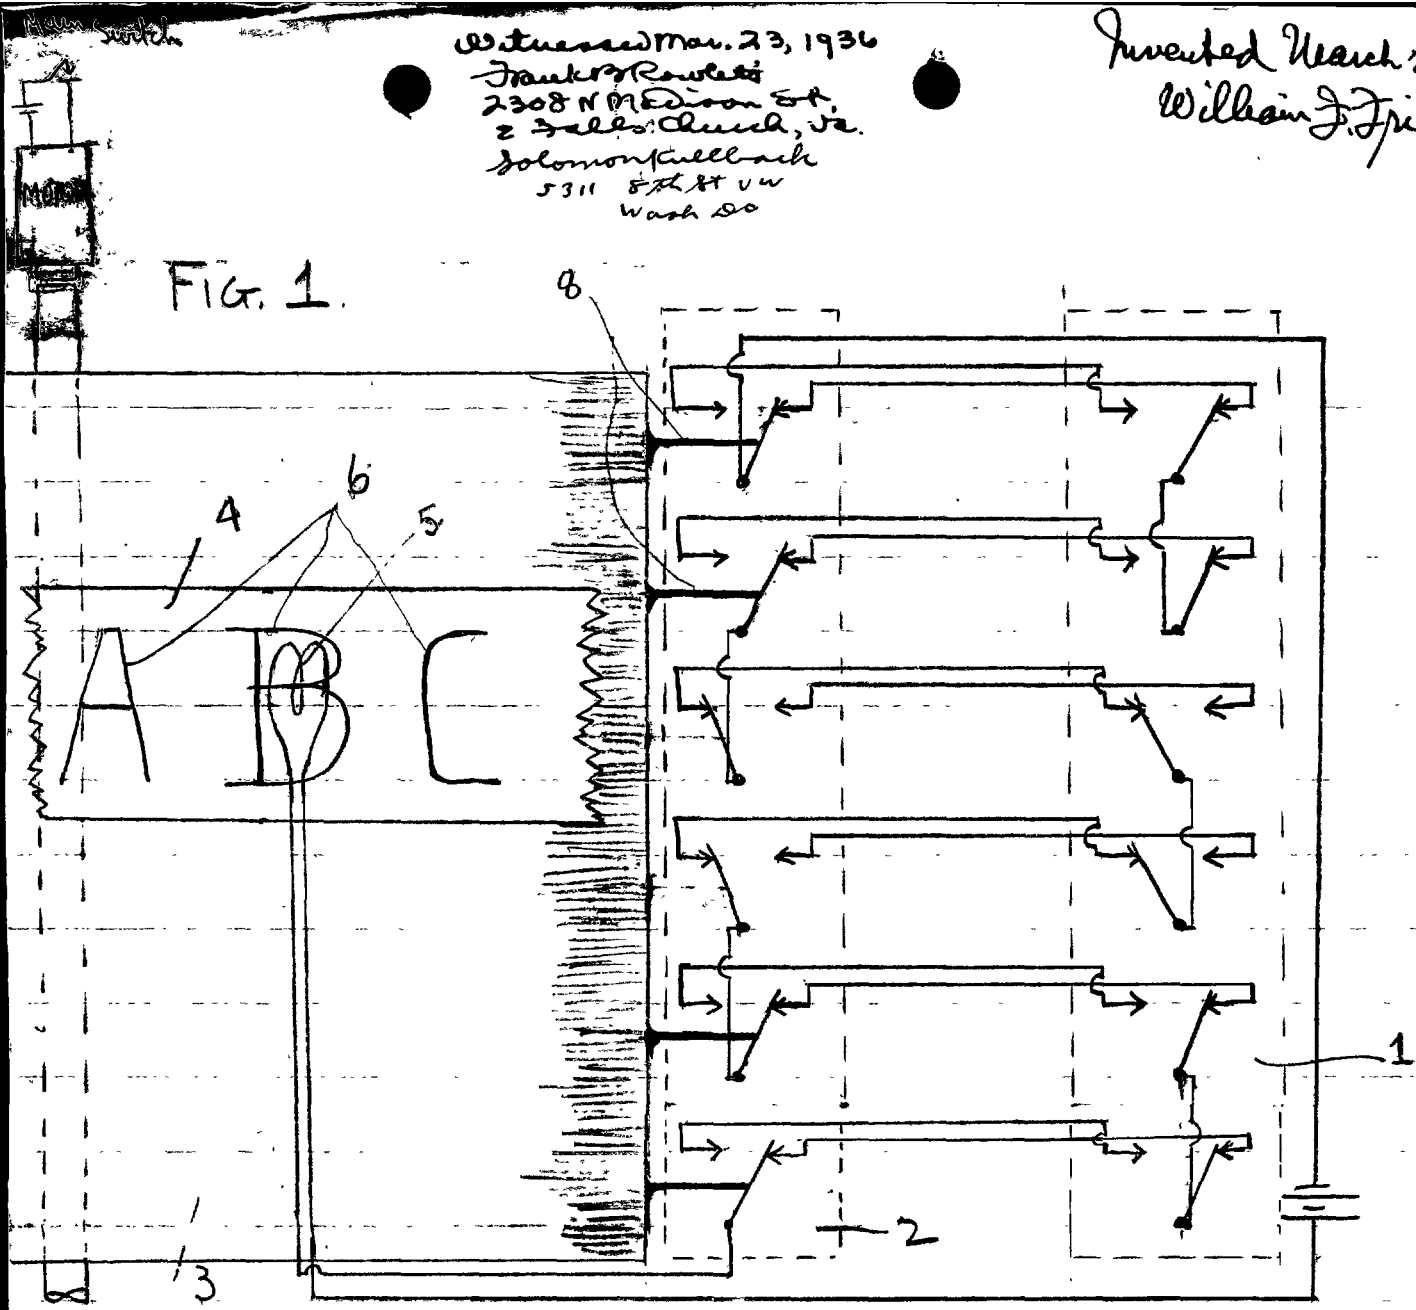 Main Switch
Witnessed Mar. 23, 1936
Frank B Rowlett
2308 N Madison St.
Falls Church, Va.
Solomon Kullback
5311 8th St NW
Wash DC
Invented March
William F. Fri
Motor
FIG. 1.
8
6
4
5
A B C
1
2
3